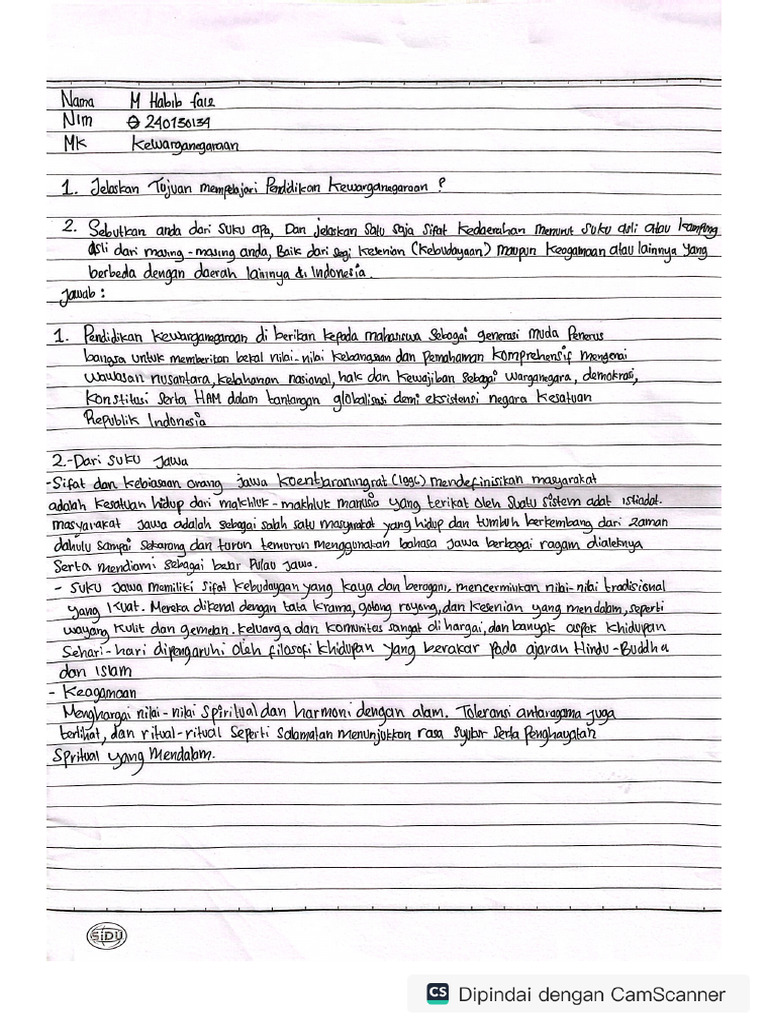 Nama M Habib faiz
Nim 240130134
Mk Kewarganegaraan
1. Jelaskan Tujuan mempelajari Penddikan Kewarganegaraan ?
2. Sebutkan anda dari suku apa, Dan jelaskan satu saja sifat Kedaerahan menurut suku asli atau kampung
asli dari masing-masing anda, Baik dari segi kesenian (kebudayaan) maupun keagamaan atau lainnya yang
berbeda dengan daerah lainnya di Indonesia.
Jawab :
1. Pendidikan kewarganegaraan di berikan kepada mahasiswa sebagai generasi muda Penerus
bangsa untuk memberikan bekal nilai-nilai kebangsaan dan Pemahaman komprehensif mengenai
wawasan nusantara, ketahanan nasional, hak dan kewajiban sebagai warganegara, demokrasi,
konstitusi serta HAM dalam tantangan globalisasi demi eksistensi negara kesatuan
Republik Indonesia
2.-Dari suku Jawa
-Sifat dan kebiasaan orang jawa koentjaraningrat (1996) mendefinisikan masyarakat
adalah kesatuan hidup dari makhluk-makhluk manusia yang terikat oleh suatu sistem adat istiadat.
masyarakat Jawa adalah sebagai salah satu masyarakat yang hidup dan tumbuh berkembang dari zaman
dahulu sampai sekarang dan turun temurun menggunakan bahasa Jawa berbagai ragam dialeknya
serta mendiami sebagai besar Pulau Jawa.
- Suku Jawa memiliki sifat kebudayaan yang kaya dan beragam, mencerminkan nilai-nilai tradisional
yang kuat. Mereka dikenal dengan tata krama, gotong royong, dan kesenian yang mendalam, seperti
wayang kulit dan gemelan. Keluarga dan komunitas sangat di hargai, dan banyak aspek khidupan
sehari-hari dipengaruhi oleh filosofi khidupan yang berakar pada ajaran Hindu-Buddha
dan Islam
- Keagamaan
Menghargai nilai-nilai spiritual dan harmoni dengan alam. Toleransi antaragama juga
terlihat, dan ritual-ritual seperti salamatan menunjukkan rasa syukur serta Penghayatan
Spritual yang Mendalam.
SiDU
CS Dipindai dengan CamScanner